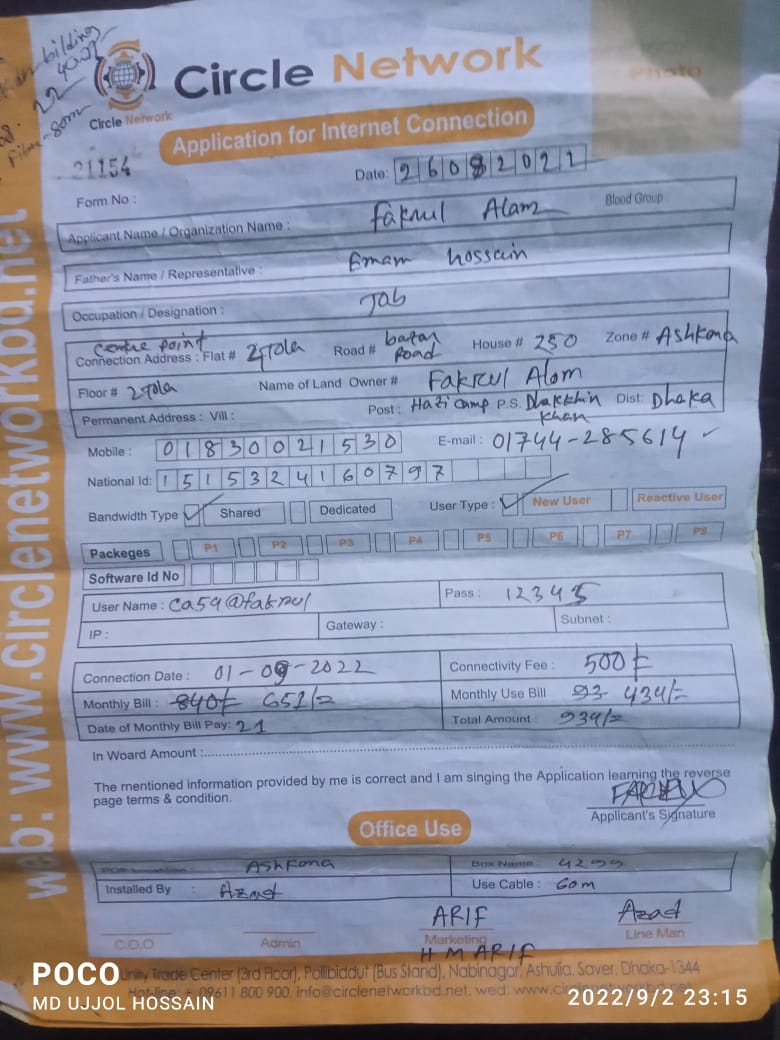 bilding
Circle Network
Circle Network
Photo
Application for Internet Connection
21154
Date: 26082021
Form No :
Applicant Name / Organization Name : Fakrul Alam Blood Group
Father's Name / Representative : Emam Hossain
Occupation / Designation : Job
Centre point
Connection Address : Flat # 2Tola Road # Road House # 250 Zone # Ashkona
Floor # 2Tola Name of Land Owner # Fakrul Alom
Permanent Address : Vill : Post : Hazi Camp P.S. Dhakkhin Khan Dist: Dhaka
Mobile : 01830021530 E-mail : 01744-285614
National Id: 1515324160797
Bandwidth Type Shared Dedicated User Type : New User Reactive User
Packeges P1 P2 P3 P4 P5 P6 P7 P8
Software Id No
User Name : ca59@fakrul Pass : 12345
IP : Gateway : Subnet :
Connection Date : 01-09-2022 Connectivity Fee : 500/=
Monthly Bill : 840/= 651/= Monthly Use Bill 93 434/=
Date of Monthly Bill Pay: 21 Total Amount : 934/=
In Woard Amount :
The mentioned information provided by me is correct and I am singing the Application learning the reverse
page terms & condition.
Applicant's Signature
Office Use
Ashkona Box Name 4299
Installed By : Azad Use Cable : 60m
ARIF Azad
C.O.O Admin Marketing Line Man
H M ARIF
Unity Trade Center (3rd Floor), Pollibiddut (Bus Stand), Nabinagar, Ashulia, Saver, Dhaka-1344
Hot-line: + 09611 800 900, info@circlenetworkbd.net, wed: www.circlenetworkbd.net
web: www.circlenetworkbd.net
POCO
MD UJJOL HOSSAIN
2022/9/2 23:15